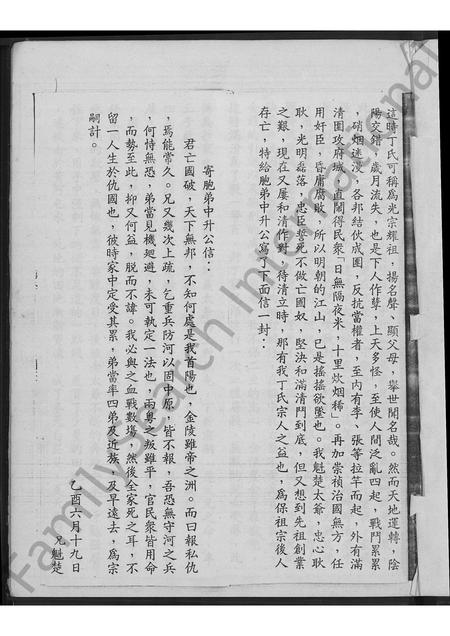 這時丁氏可稱為光宗耀祖，揚名聲，顯父母，舉世聞名哉。然而天地運轉，陰
陽交錯，歲月流失，也是下人作孽，上天多怪，至使人間泛亂四起，戰鬥累累
，硝烟迷漫，各邦結伙成團，反抗當權者，至內有李、張等拉竿而起，外有滿
清圍攻府城，直鬧得民衆「日無隔夜米，十里炊烟稀」。再加崇禎治國無方，任
用奸臣，昏庸腐敗，所以明朝的江山，已是搖搖欲墜也。我魁楚太爺，忠心耿
耿，光明磊落，忠臣誓死不做亡國奴，堅決和滿清鬥到底，但又想到先祖創業
之艱，現在又屢和清作對，待清立時，那有我丁氏宗人之益也，為保祖宗後人
存亡，特給胞弟中升公寫了下面信一封：
寄胞弟中升公信：
君亡國破，天下無邦，不知何處是我首陽也，金陵雖帝之洲。而曰報私仇
，焉能常久。兄又幾次上疏，乞重兵防河以固中原，皆不報，吾恐無守河之兵
，何恃無恐，弟當見機迴避，未可執定一法也，兩粵之叛雖平，官民衆皆用命
，而勢至此，抑又何益，脫而不諱。我必與之血戰數塲，然後全家死之耳，不
留一人生於仇國也，彼時家中定受其累，弟當率四弟及近族，及早遠去，為宗
嗣計。
乙酉六月十九日
兄魁楚
FamilySearch International